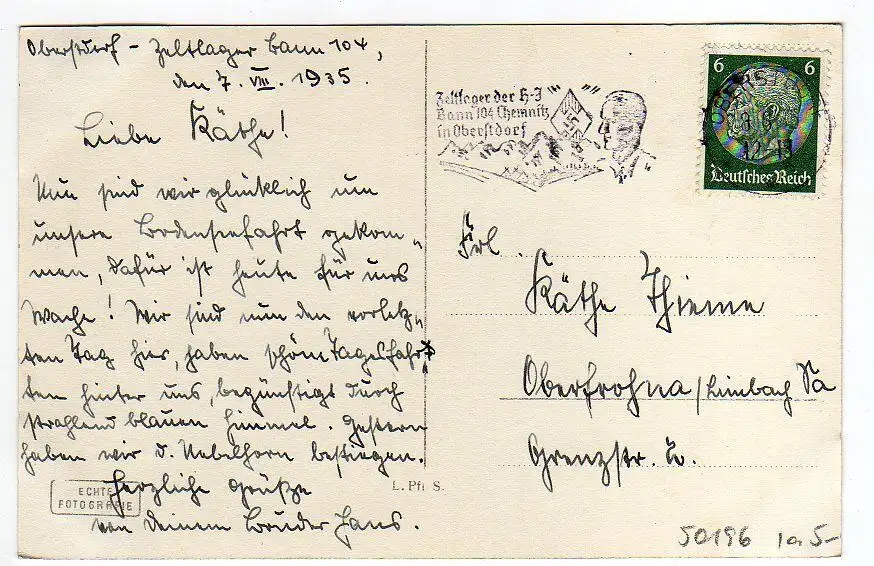 Oberstdorf – Zeltlager Bann 104,
den 7. VIII. 1935.
Liebe Käthe!
Nun sind wir glücklich um
unsere Bodenseefahrt gekom„
men, dafür ist heute für uns
Wache! Wir sind nun den vorletz„
ten Tag hier, haben schöne Tagesfahr„
ten hinter uns, begünstigt durch
strahlend blauen Himmel. Gestern
haben wir d. Nebelhorn bestiegen.
Herzliche Grüße
von Deinem Bruder Hans.
ECHTE
FOTOGRAFIE
L. Pfr S.
Zeltlager der H-J
Bann 104 Chemnitz
in Oberstdorf
6 6
Deutsches Reich
OBERSTDORF
Frl.
Käthe Thieme
Oberfrohna/Limbach Sa
Grenzstr. 2.
50196 1a 5-